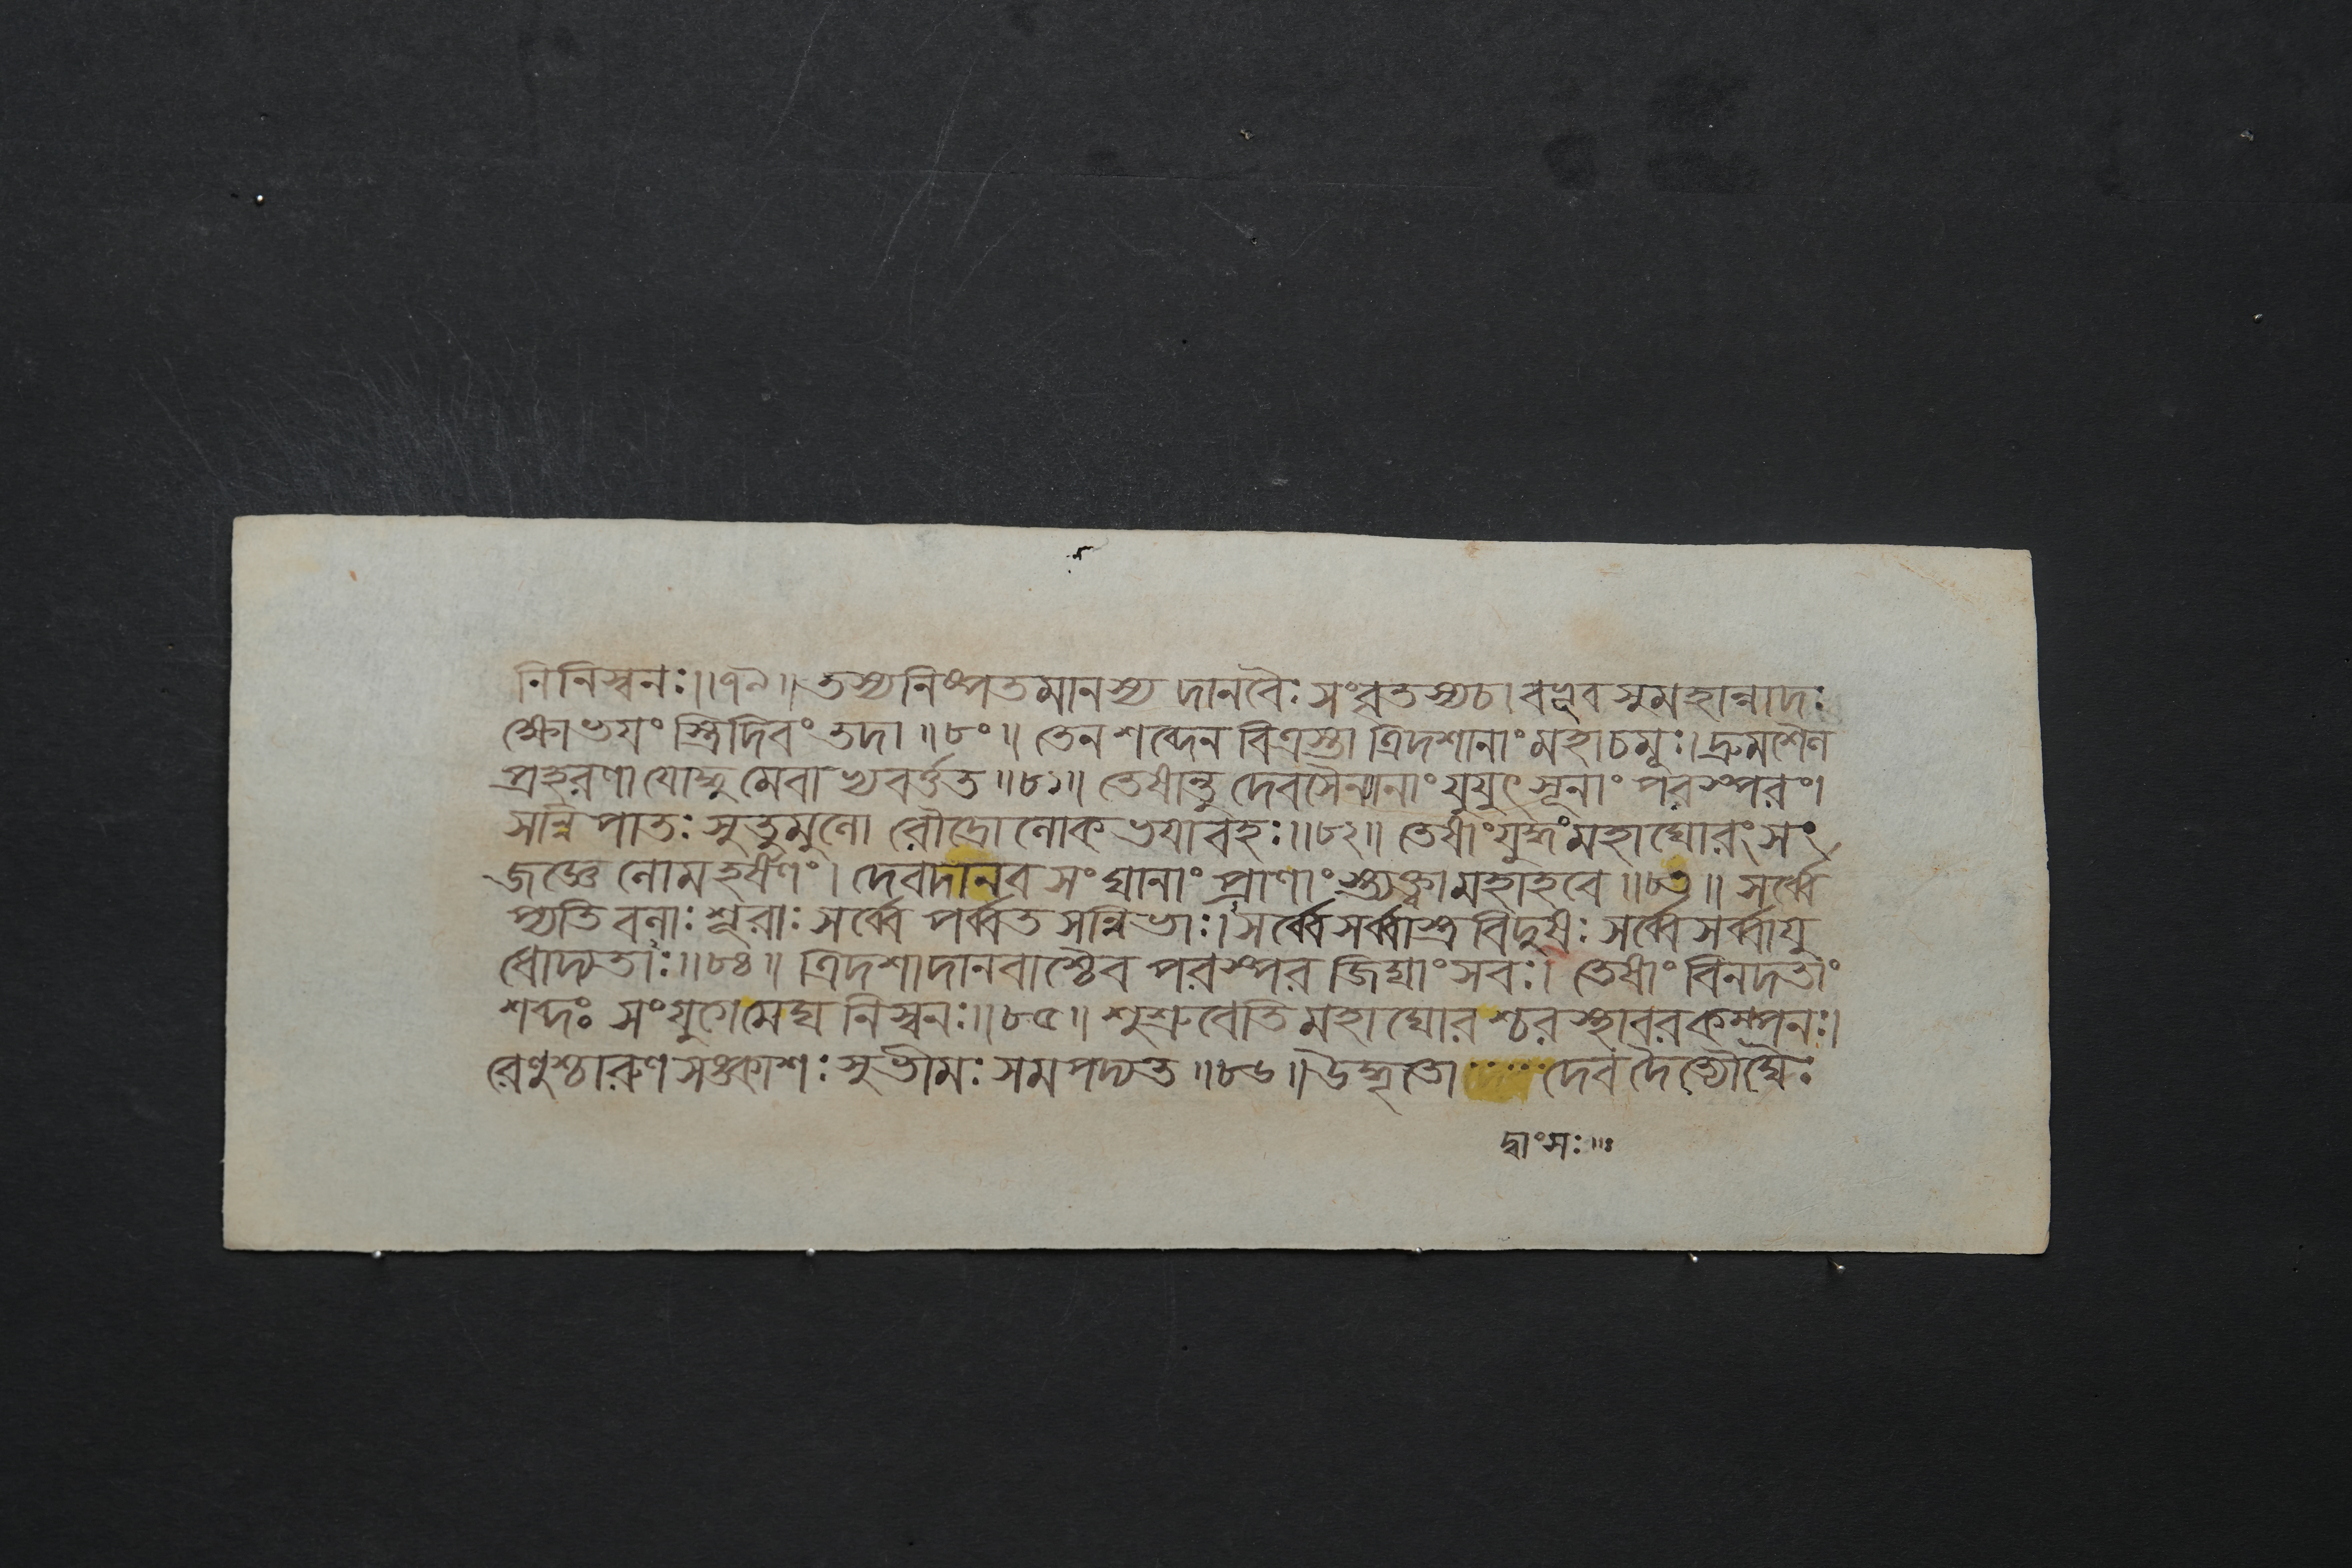 নিনিস্বনঃ॥৭৯॥ তস্যনিষ্পতমানস্য দানবৈঃ সংবৃতস্যচ। বভূব সুমহান্নাদঃ
ক্ষোভয়ং স্ত্রিদিবং তদা॥৮০॥ তেন শব্দেন বিত্রস্তা ত্রিদশানাং মহাচমূঃ। দ্রুমশৈল
প্রহরণা যোদ্ধুমেবাভ্যবর্ত্তত॥৮১॥ তেষান্তু দেবসৈন্যানাং যুযুৎসূনাং পরস্পরং।
সন্নিপাতঃ সুতুমুলো রৌদ্রো লোকভয়াবহঃ॥৮২॥ তেষাংযুদ্ধংমহাঘোরং সং
জজ্ঞে লোমহর্ষণং। দেবদানব সংঘানাং প্রাণাং স্ত্যক্ত্বা মহাহবে॥৮৩॥ সর্ব্বে
প্যতি বলাঃ শূরাঃ সর্ব্বে পর্ব্বত সন্নিভাঃ। সর্ব্বে সর্ব্বাস্ত্র বিদুষঃ সর্ব্বে সর্ব্বায়ু
ধোদ্যতাঃ॥৮৪॥ ত্রিদশাদানবাশ্চৈব পরস্পর জিঘাংসবঃ। তেষাং বিনদতাং
শব্দঃ সংযুগেমেঘ নিস্বনঃ॥৮৫॥ শুশ্রুবেতি মহাঘোর শ্চর স্থাবর কম্পনঃ।
রেণুশ্চারুণ সঙ্কাশঃ সুভীমঃ সমপদ্যত॥৮৬॥ উদ্ধূতো দেব দৈত্যৌঘৈঃ
দ্বাংসঃ॥ঃ